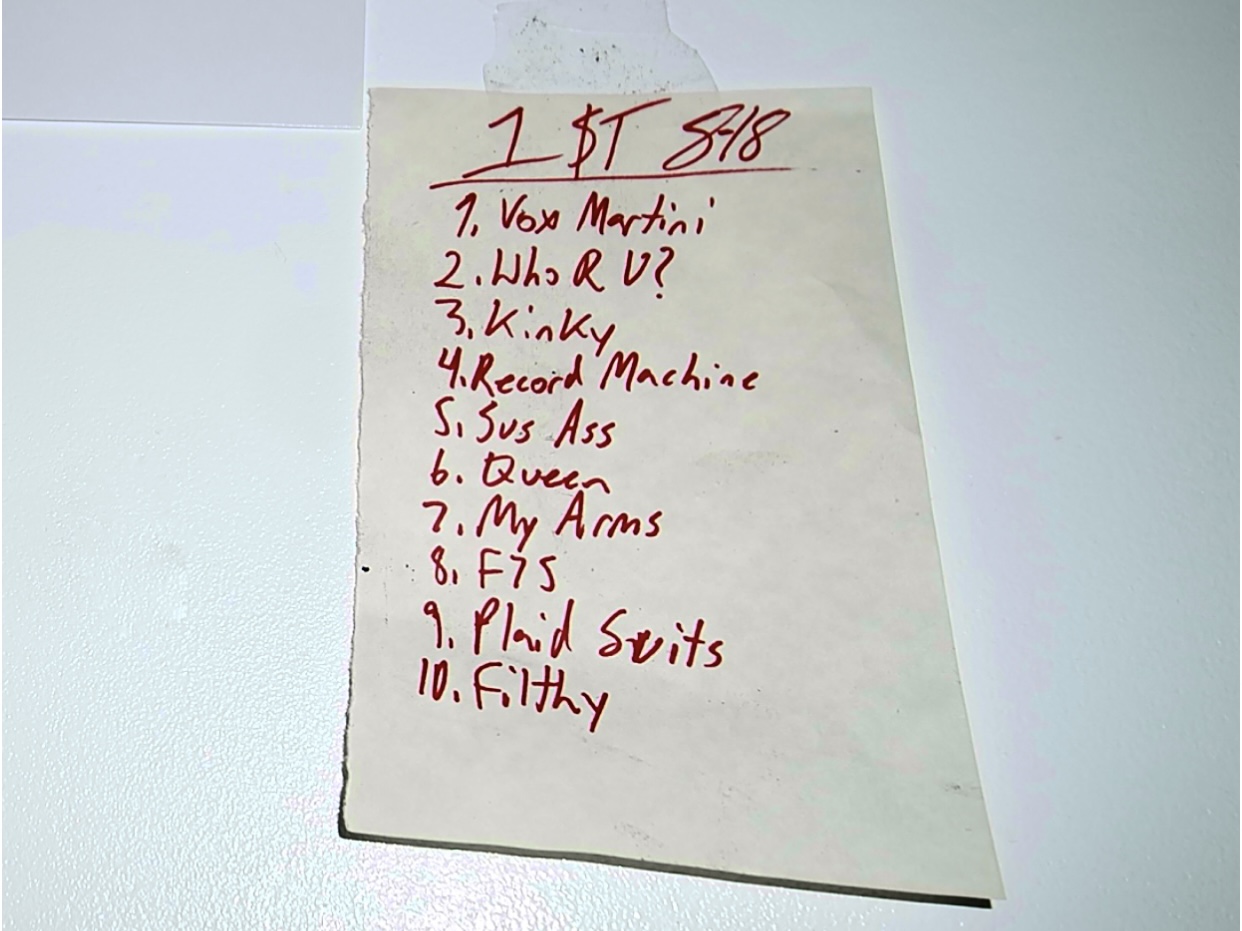 1 $T 8-18
1. Vox Martini
2. Who R U?
3. Kinky
4. Record Machine
5. Sus Ass
6. Queen
7. My Arms
8. F7S
9. Plaid Suits
10. Filthy